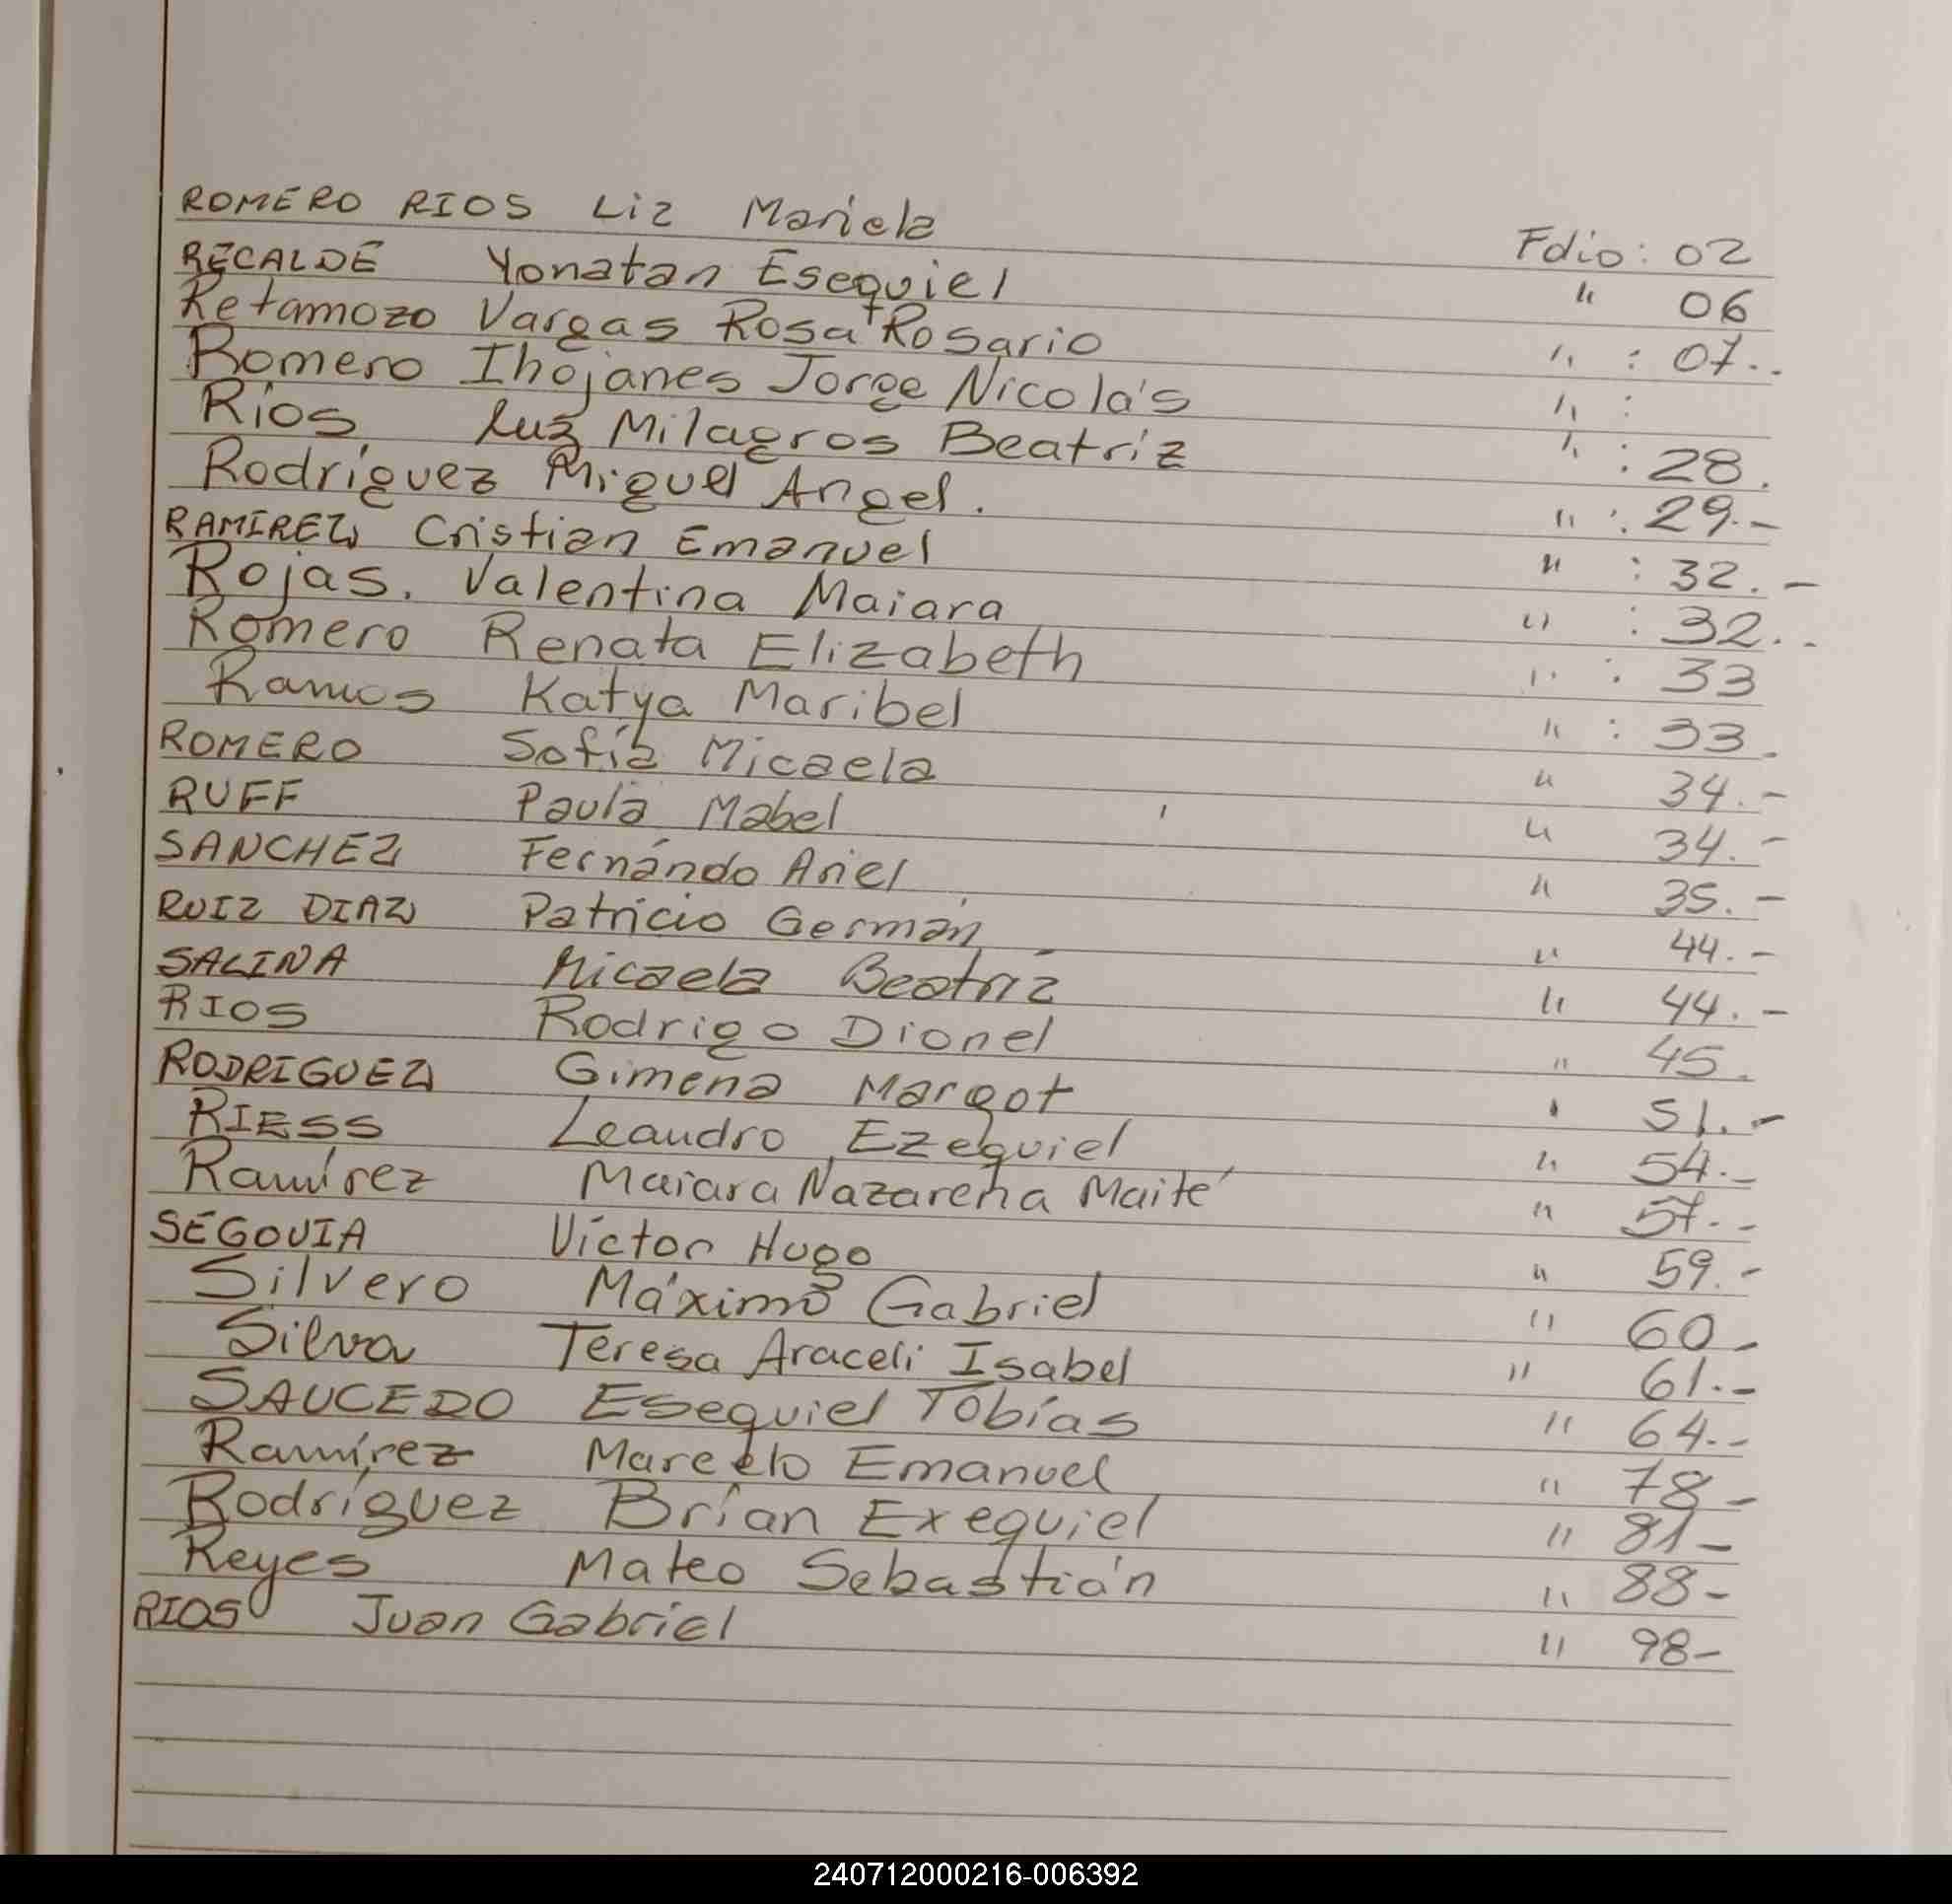 ROMERO RIOS Liz Mariela Folio: 02
RECALDE Yonatan Esequiel " 06
Retamozo Vargas Rosa Rosario " : 07..
Romero Ihojanes Jorge Nicolás " :
Ríos Luz Milagros Beatriz " : 28.
Rodríguez Miguel Angel. " : 29.-
RAMIREZ Cristian Emanuel " : 32.-
Rojas. Valentina Maiara " : 32..
Romero Renata Elizabeth " : 33
Ramos Katya Maribel " : 33.
ROMERO Sofía Micaela " 34.-
RUFF Paula Mabel " 34.-
SANCHEZ Fernándo Ariel " 35.-
RUIZ DIAZ Patricio Germán " 44.-
SALINA Micaela Beatriz " 44.-
RIOS Rodrigo Dionel " 45.
RODRIGUEZ Gimena Margot " 51.-
RIESS Leandro Ezequiel " 54.-
Ramírez Maiara Nazarena Maité " 57.-
SEGOVIA Víctor Hugo " 59.-
Silvero Máximo Gabriel " 60-
Silva Teresa Araceli Isabel " 61.-
SAUCEDO Esequiel Tobías " 64.-
Ramírez Marcelo Emanuel " 78-
Rodríguez Brían Exequiel " 81-
Reyes Mateo Sebastián " 88-
RIOS Juan Gabriel " 98-
240712000216-006392